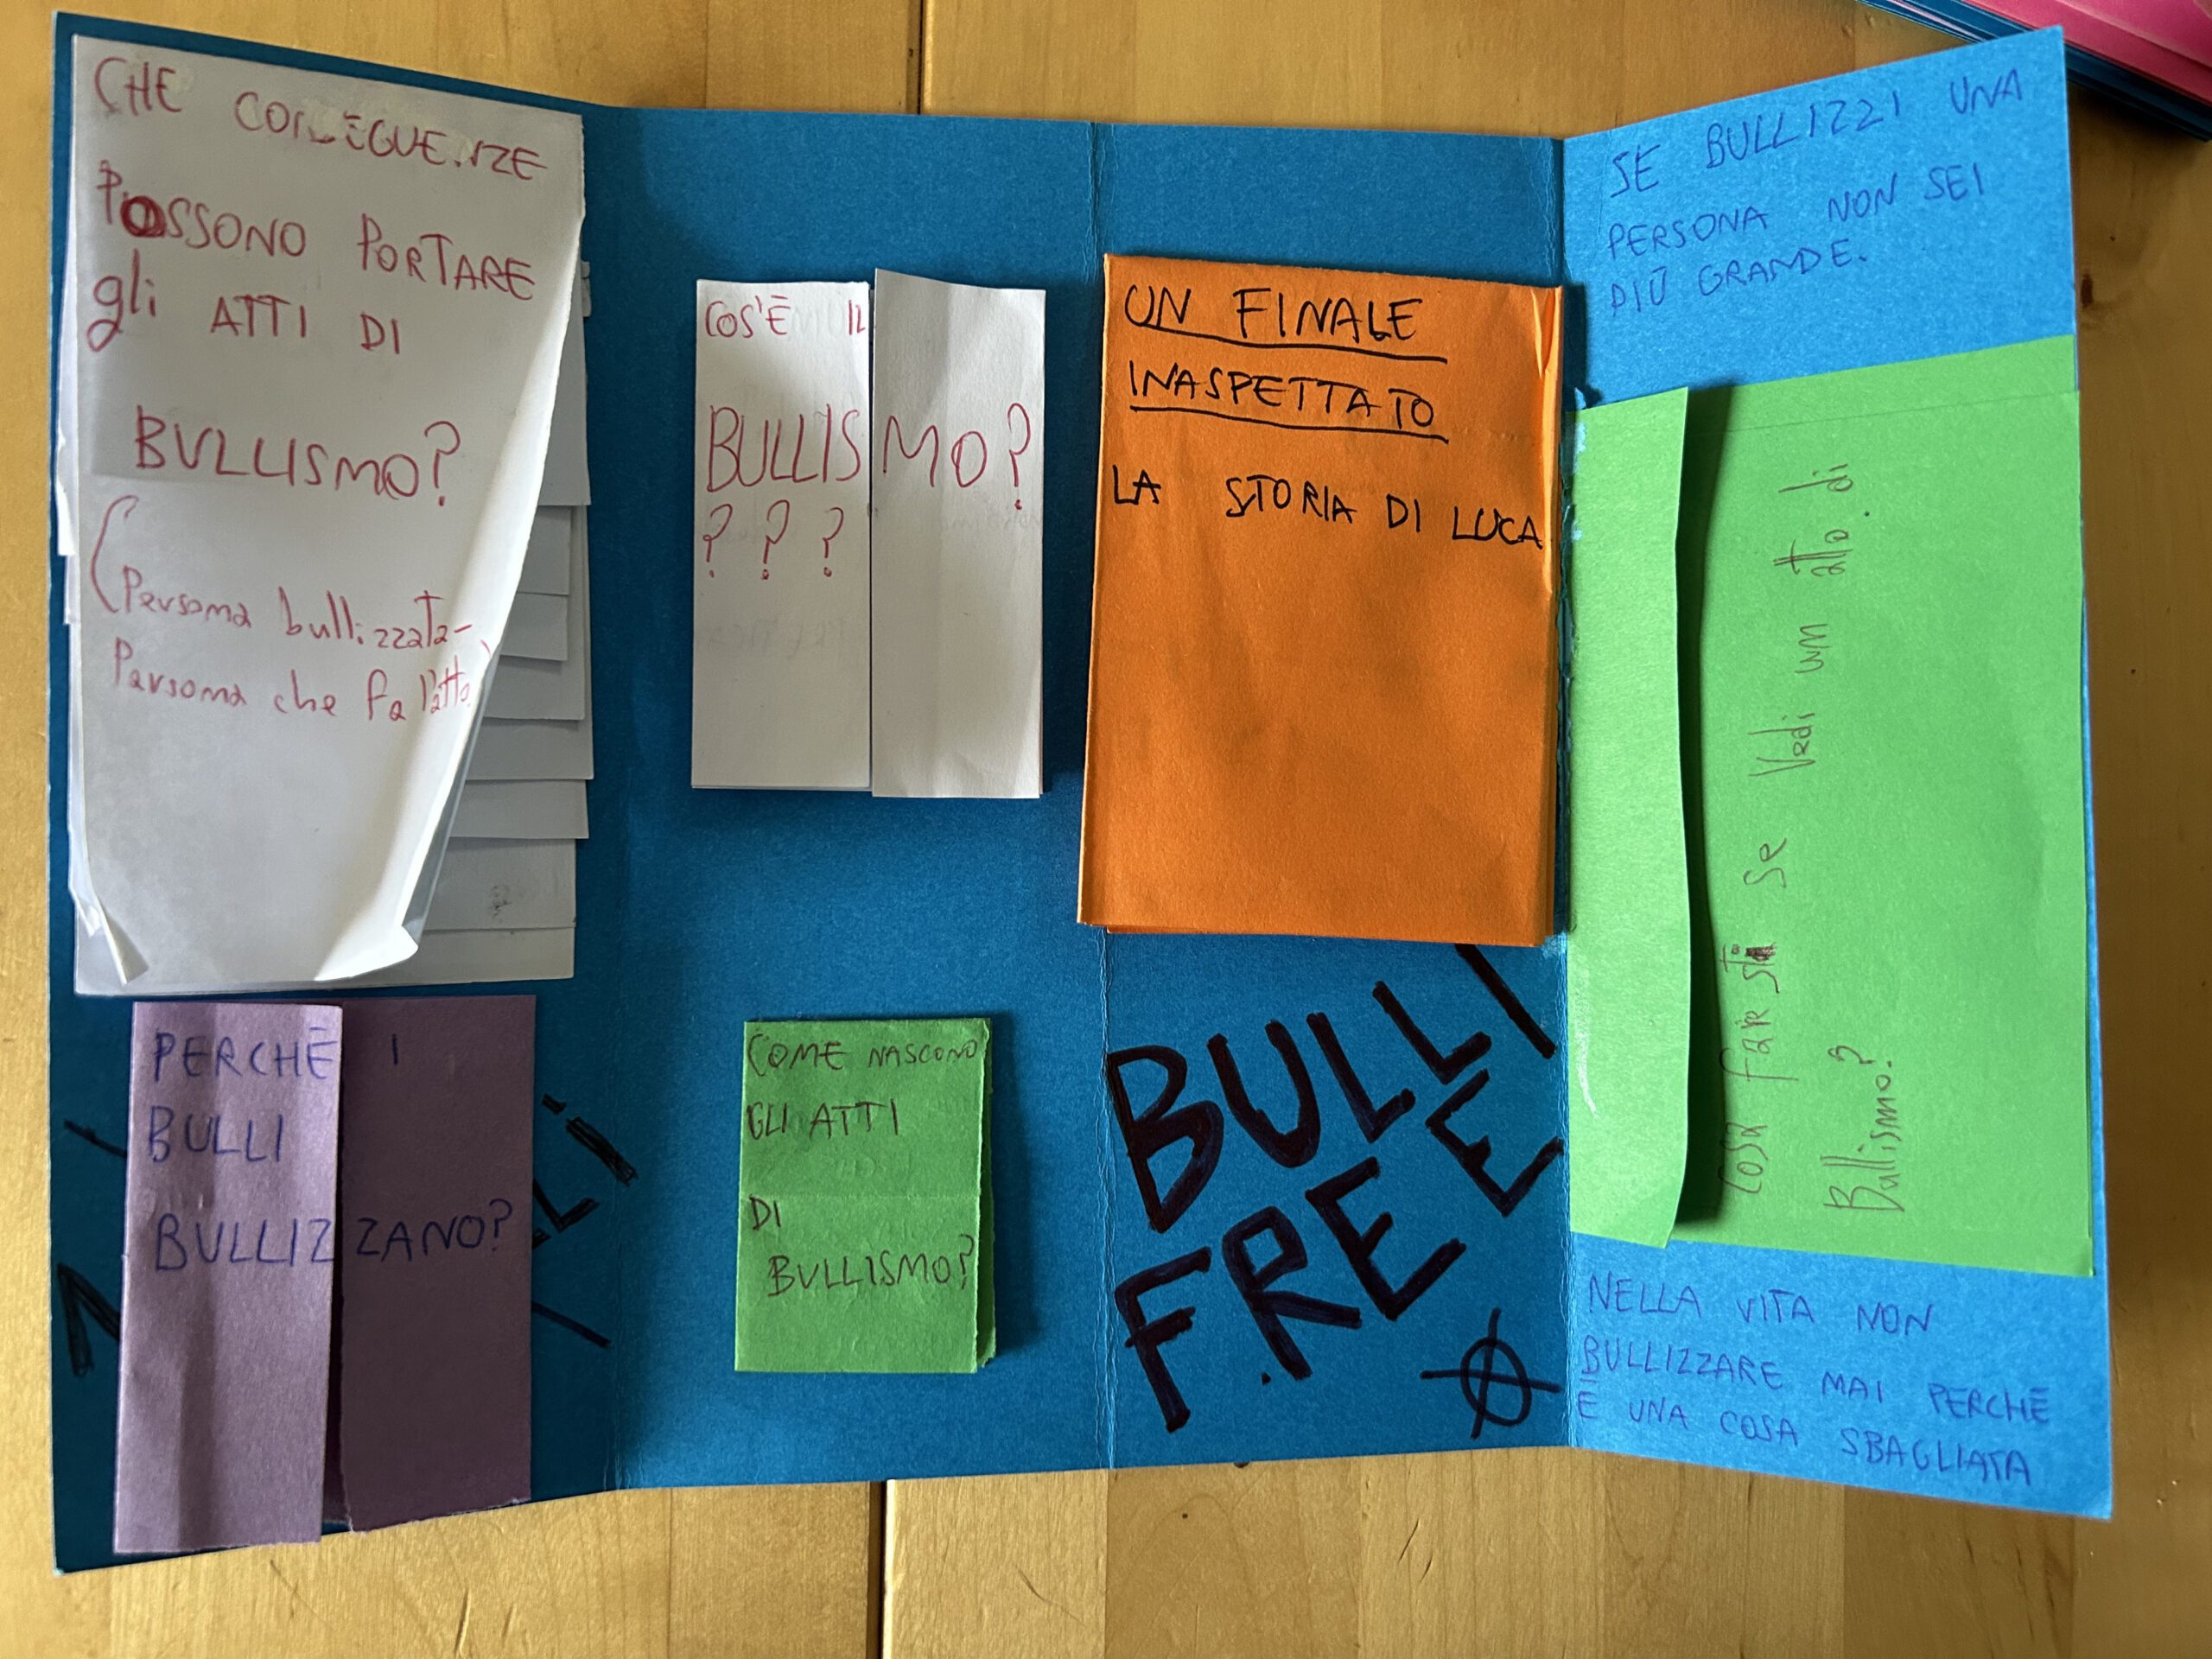 CHE CONSEGUENZE
POSSONO PORTARE
gli ATTI DI
BULLISMO?
(Persona bullizzata-
Persona che fa l'atto)
PERCHÉ I
BULLI
BULLIZZANO?
COS'È IL
BULLISMO?
? ? ?
COME NASCONO
GLI ATTI
DI
BULLISMO?
UN FINALE
INASPETTATO
LA STORIA DI LUCA
BULLI
FREE
SE BULLIZZI UNA
PERSONA NON SEI
PIÙ GRANDE.
Cosa faresti se Vedi un atto di
Bullismo?
NELLA VITA NON
BULLIZZARE MAI PERCHÉ
È UNA COSA SBAGLIATA